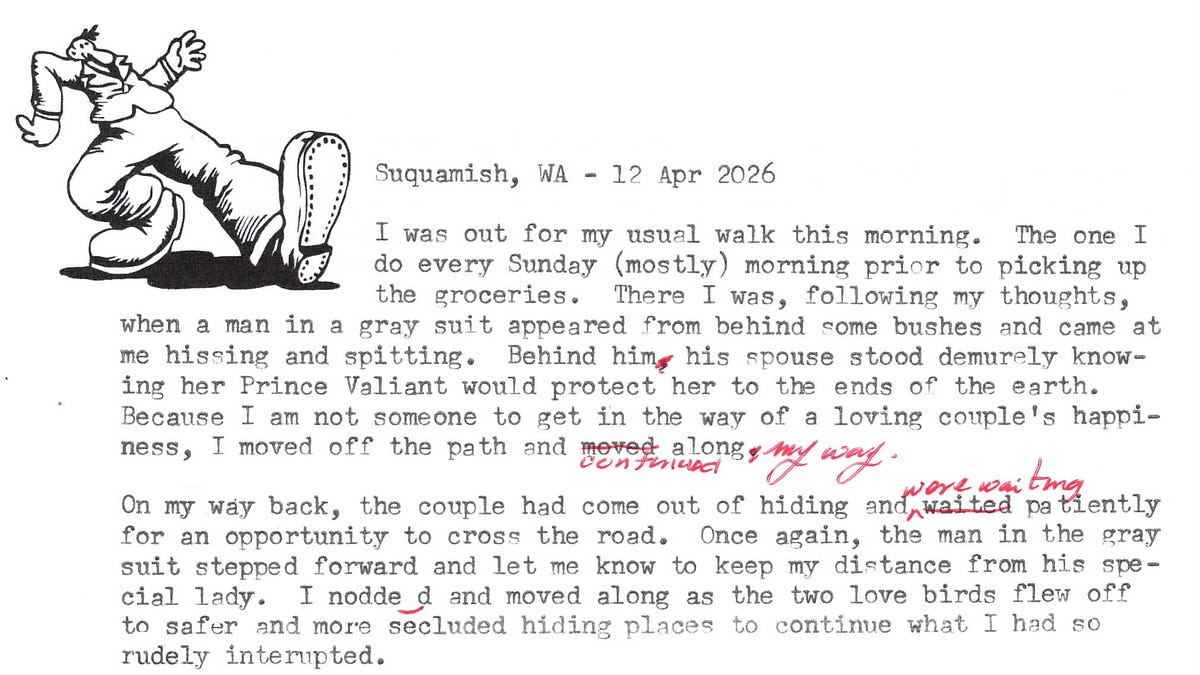 Suquamish, WA - 12 Apr 2026
I was out for my usual walk this morning. The one I
do every Sunday (mostly) morning prior to picking up
the groceries. There I was, following my thoughts,
when a man in a gray suit appeared from behind some bushes and came at
me hissing and spitting. Behind him, his spouse stood demurely know-
ing her Prince Valiant would protect her to the ends of the earth.
Because I am not someone to get in the way of a loving couple's happi-
ness, I moved off the path and moved along, my way.
continued
were waiting
On my way back, the couple had come out of hiding and waited patiently
for an opportunity to cross the road. Once again, the man in the gray
suit stepped forward and let me know to keep my distance from his spe-
cial lady. I nodde d and moved along as the two love birds flew off
to safer and more secluded hiding places to continue what I had so
rudely interupted.